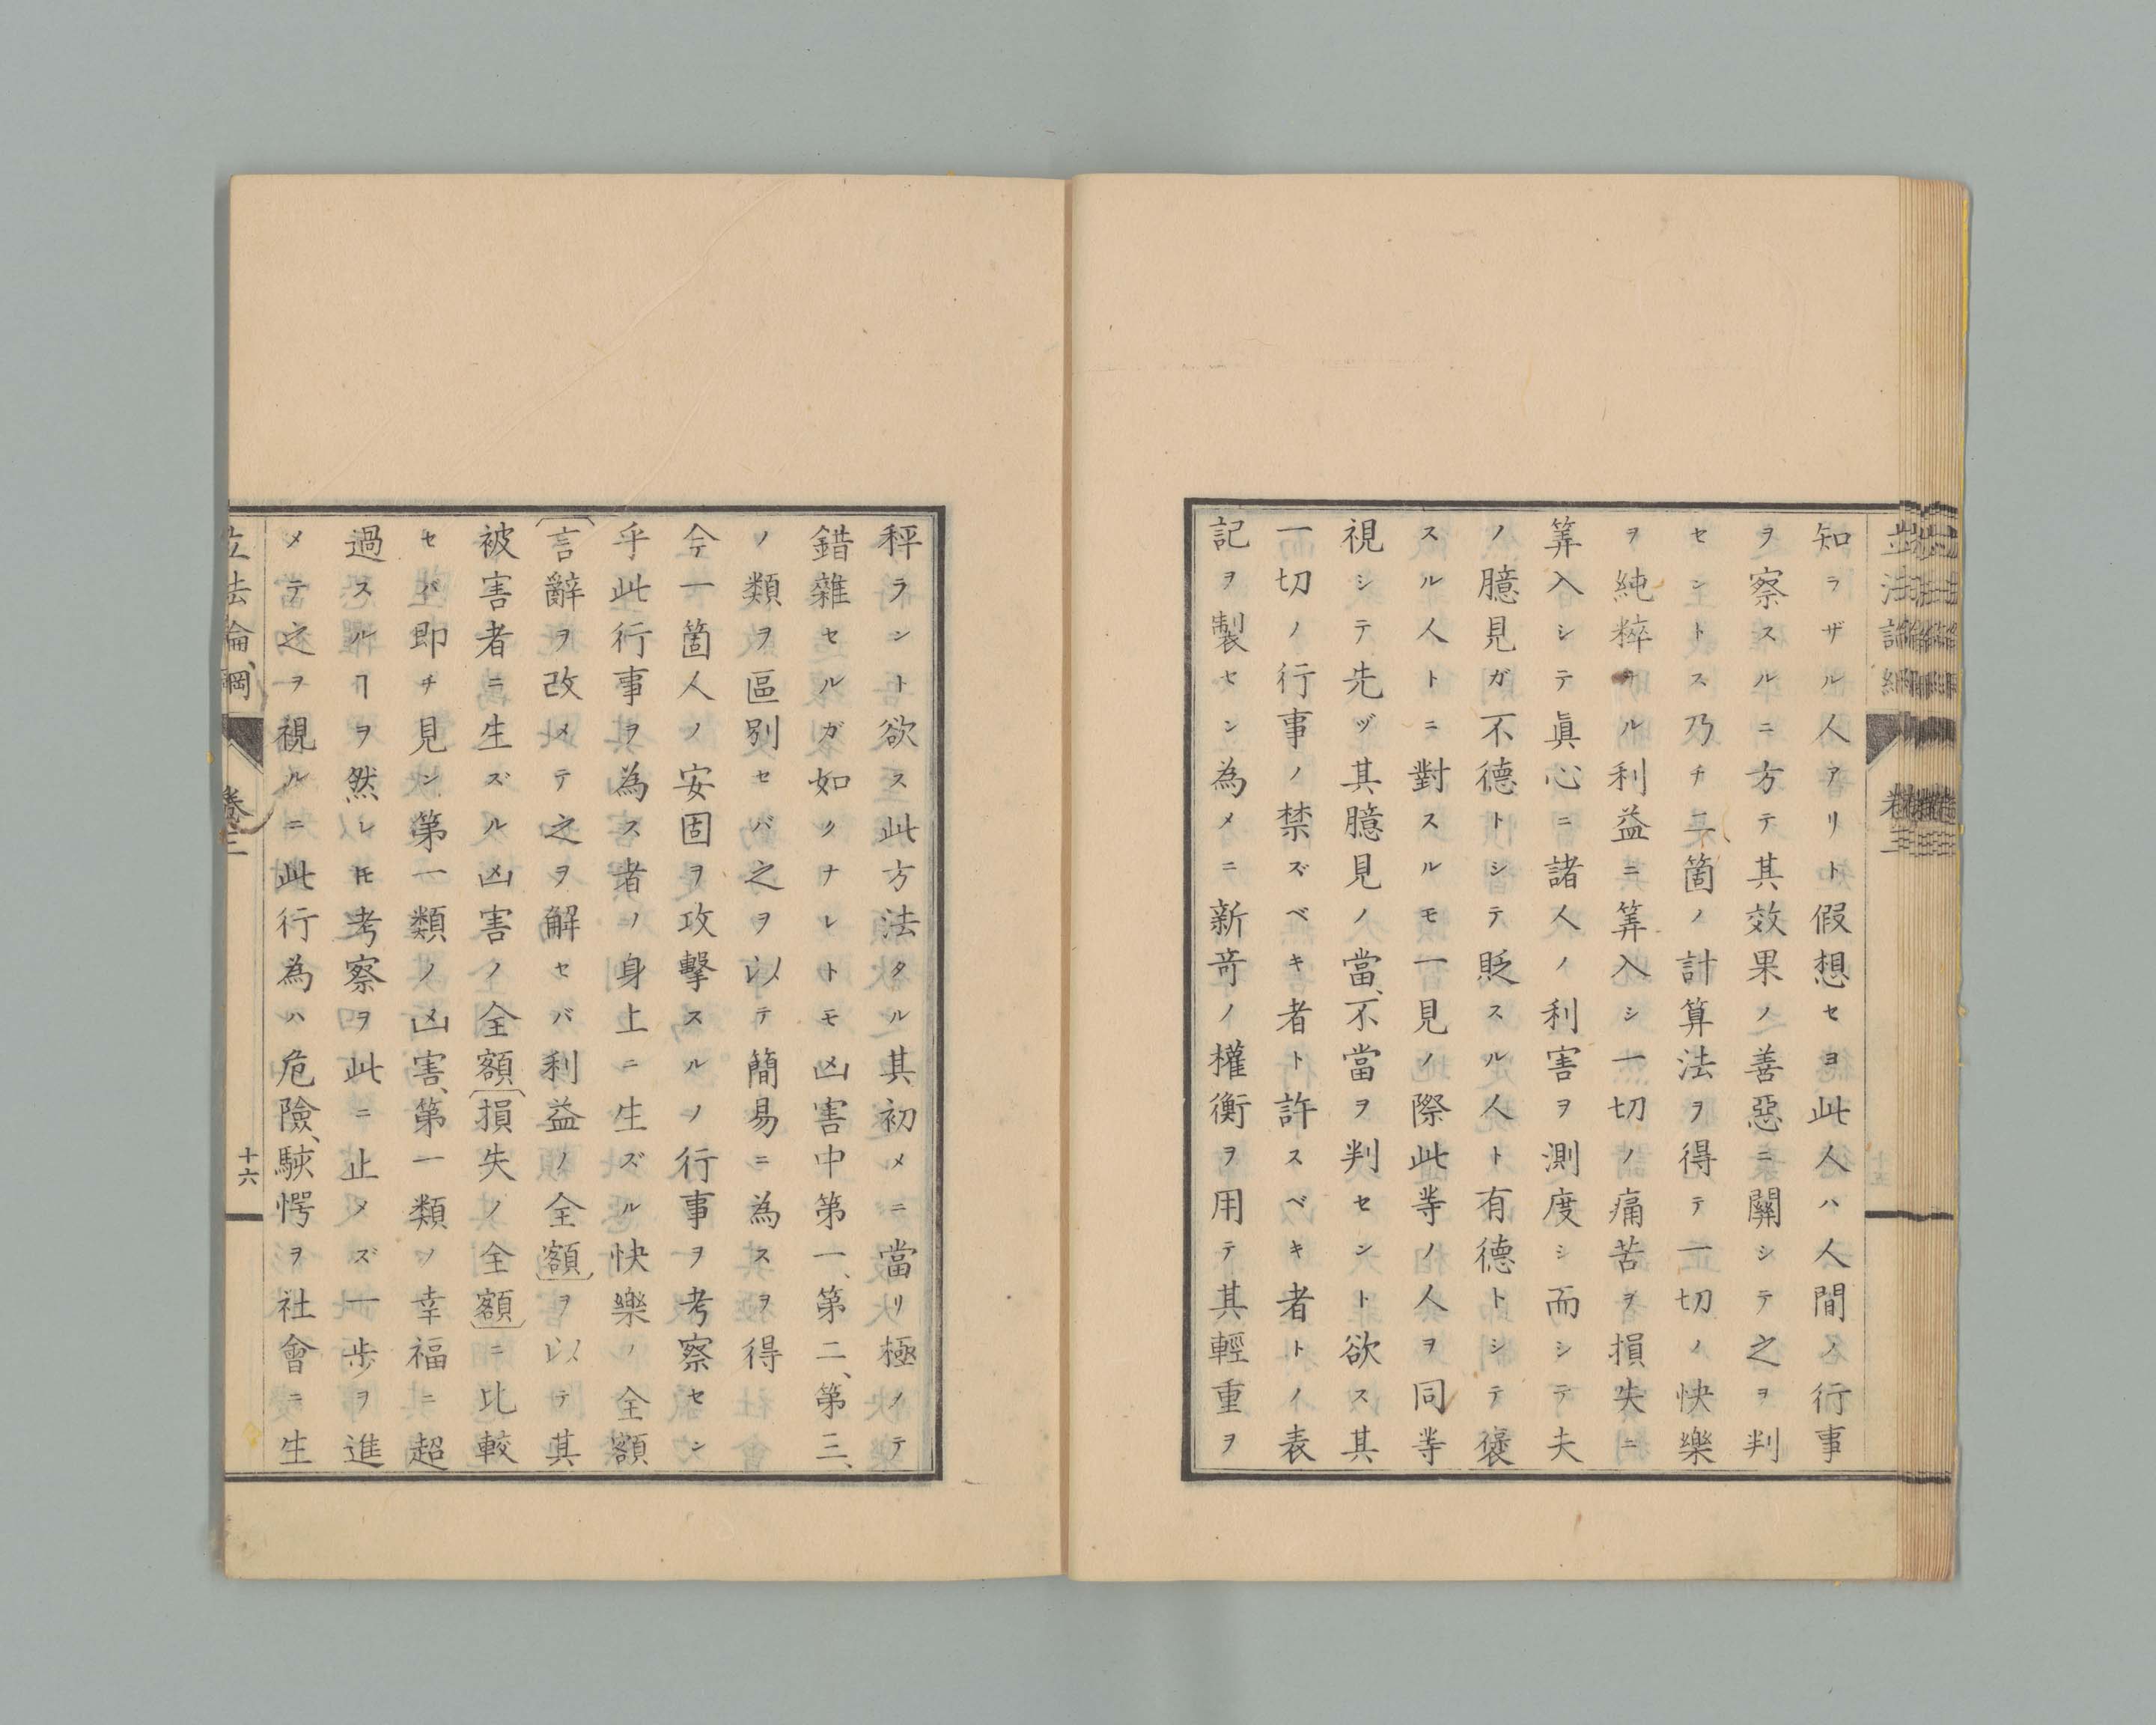 立法論綱 卷三
知ラザル人アリト假想セヨ此人ハ人間ノ行事
ヲ察スルニ方テ其效果ノ善惡ニ關シテ之ヲ判
セントス乃チ二箇ノ計算法ヲ得テ一切ノ快樂
ヲ純粹ナル利益ニ筭入シ一切ノ痛苦ヲ損失ニ
筭入シテ眞心ニ諸人ノ利害ヲ測度シ而シテ夫
ノ臆見ガ不德トシテ貶スル人ト有德トシテ褒
スル人トニ對スルモ一見ノ際此等ノ人ヲ同等
視シテ先ヅ其臆見ノ當、不當ヲ判セント欲ス其
一切ノ行事ノ禁ズベキ者ト許スベキ者トノ表
記ヲ製セン為メニ新奇ノ權衡ヲ用テ其輕重ヲ
秤ラント欲ス此方法タル其初メニ當リ極ノテ
錯雜セルガ如クナレトモ凶害中第一、第二、第三、
ノ類ヲ區別セバ之ヲ以テ簡易ニ為スヲ得
今一箇人ノ安固ヲ攻擊スルノ行事ヲ考察セン
乎此行事ヲ為ス者ノ身上ニ生ズル快樂ノ全額
〔言辭ヲ改メテ之ヲ解セバ利益ノ全額〕ヲ以テ其
被害者ニ生ズル凶害ノ全額〔損失ノ全額〕ニ比較
セバ即チ見ン第一類ノ凶害、第一類ノ幸福ニ超
過スルヿヲ然レ𪜈考察ヲ此ニ止メズ一歩ヲ進
メテ之ヲ視ルニ此行為ハ危險、駭愕ヲ社會ニ生
立法論綱 卷三 十六